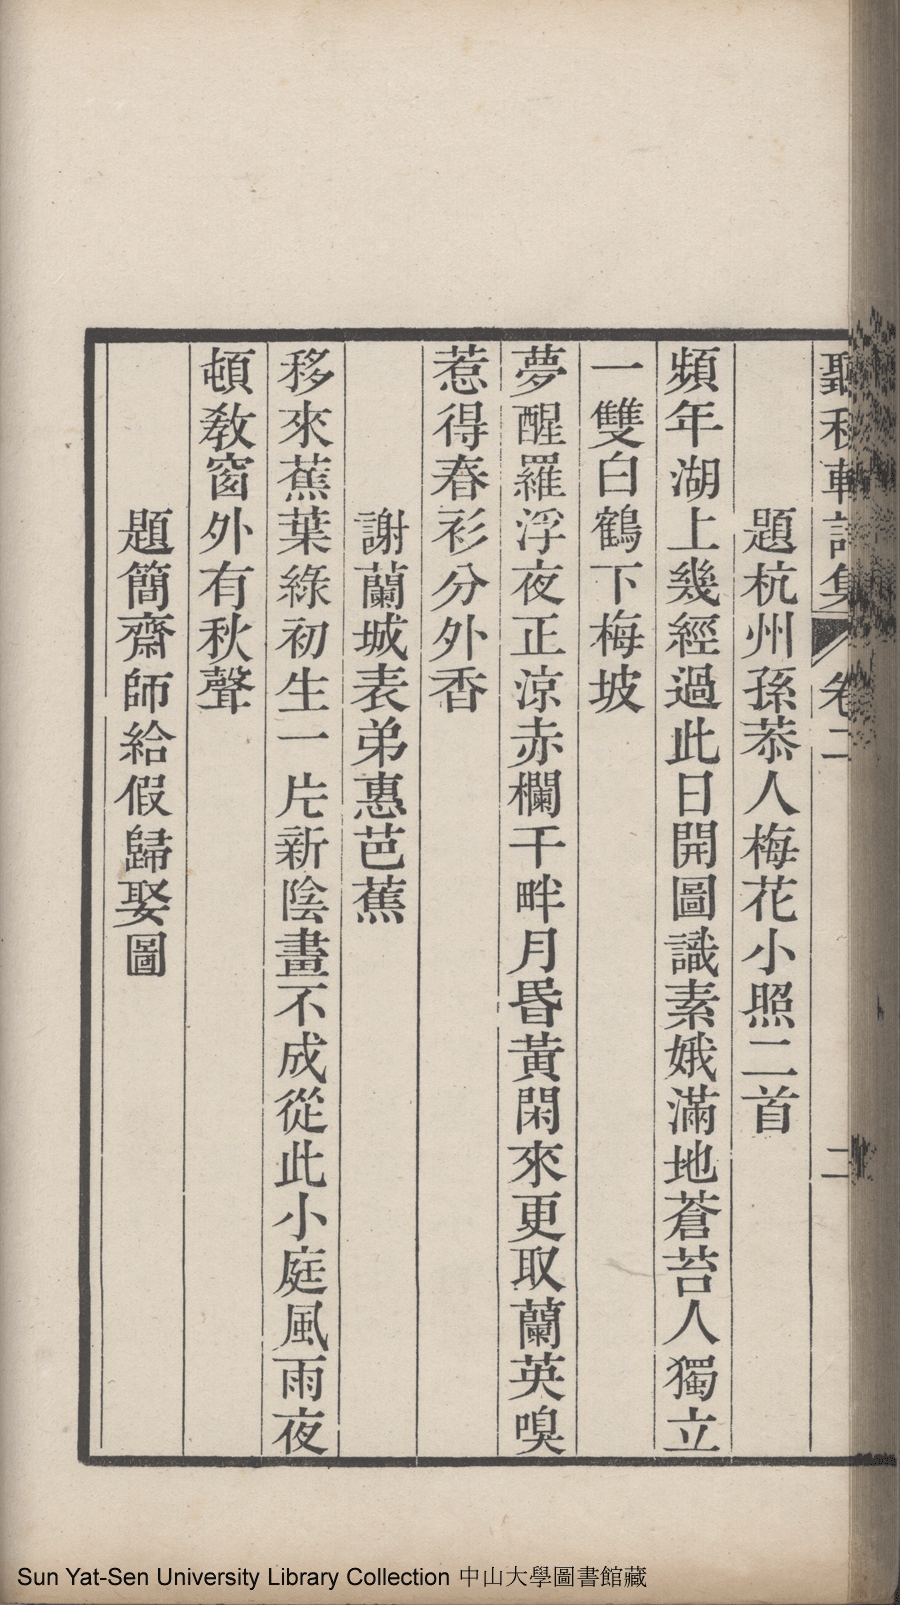 聽秋軒詩集 卷二 二
題杭州孫恭人梅花小照二首
頻年湖上幾經過此日開圖識素娥滿地蒼苔人獨立
一雙白鶴下梅坡
夢醒羅浮夜正涼赤欄干畔月昬黃閑來更取蘭英嗅
惹得春衫分外香
謝蘭城表弟惠芭蕉
移來蕉葉綠初生一片新陰畫不成從此小庭風雨夜
頓敎窗外有秋聲
題簡齋師給假歸娶圖
Sun Yat-Sen University Library Collection 中山大學圖書館藏